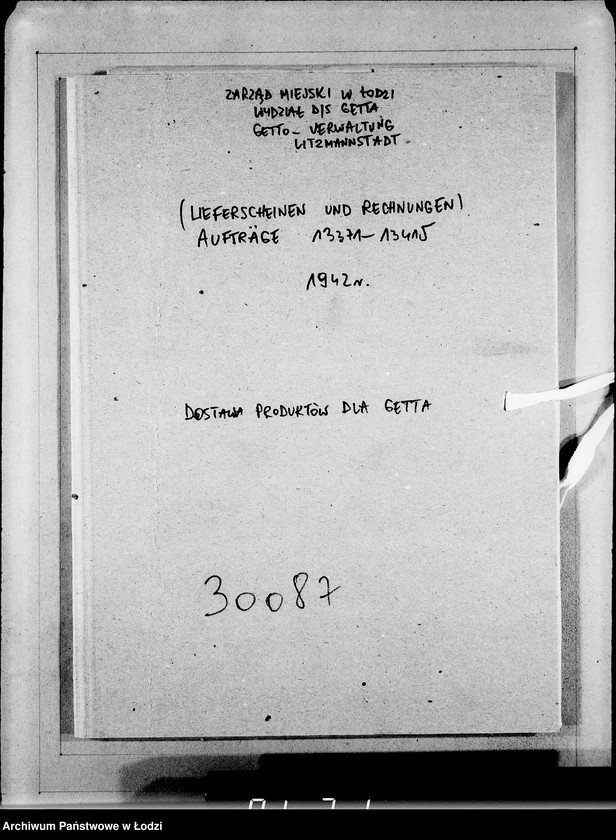 ZARZĄD MIEJSKI W ŁODZI
WYDZIAŁ D/S GETTA
GETTO - VERWALTUNG
LITZMANNSTADT.
(LIEFERSCHEINEN UND RECHNUNGEN)
AUFTRÄGE 13371-13415
1942r.
DOSTAWA PRODUKTÓW DLA GETTA
30087
Archiwum Państwowe w Łodzi